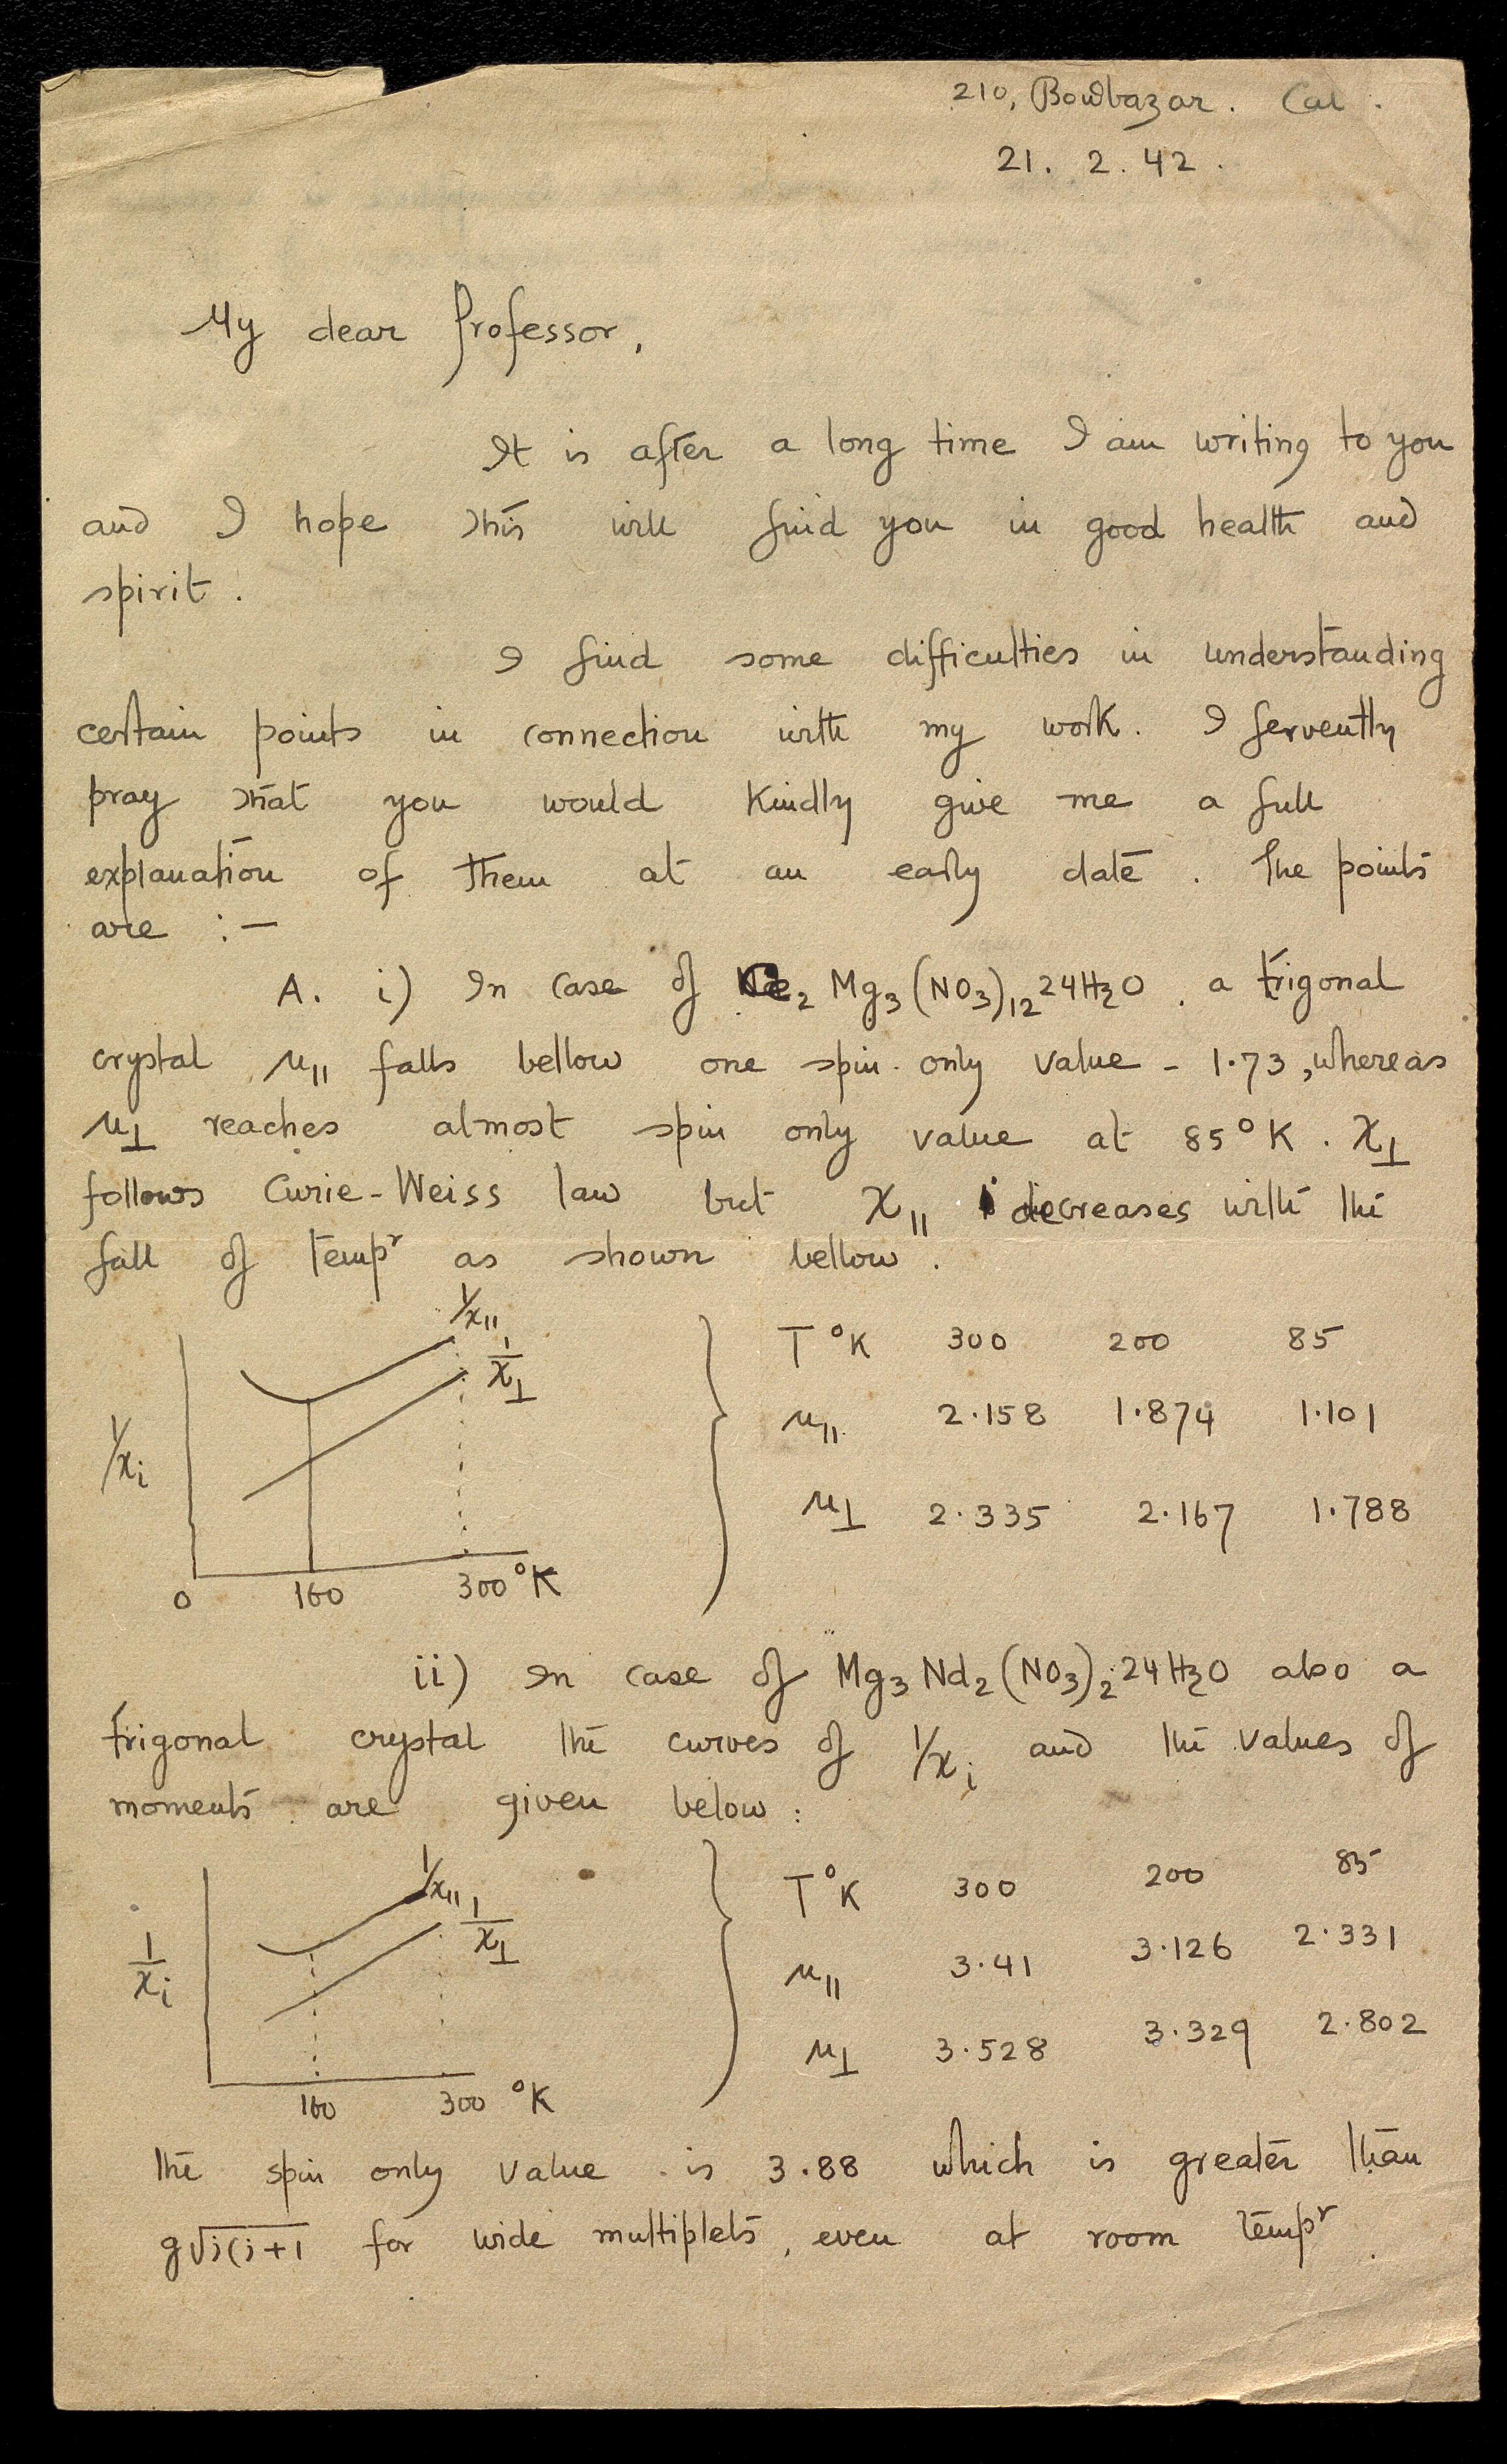 210, Bowbazar. Cal.
21. 2. 42.
My dear Professor,
It is after a long time I am writing to you
and I hope this will find you in good health and
spirit.
I find some difficulties in understanding
certain points in connection with my work. I fervently
pray that you would kindly give me a full
explanation of them at an early date. The points
are :—
A. i) In case of Ce₂ Mg₃ (NO₃)₁₂ 24H₂O, a trigonal
crystal μ∥ falls bellow one spin only value - 1.73, whereas
μ⊥ reaches almost spin only value at 85°K. χ⊥
follows Curie-Weiss law but χ∥ decreases with the
fall of tempʳ as shown bellow.
1/χ∥
1/χ⊥
1/χᵢ
0 160 300°K
T°K 300 200 85
μ∥ 2.158 1.874 1.101
μ⊥ 2.335 2.167 1.788
ii) In case of Mg₃ Nd₂ (NO₃)₂ 24H₂O also a
trigonal crystal the curves of 1/χᵢ and the values of
moments are given below:
1/χ∥
1/χ⊥
1/χᵢ
160 300 °K
T°K 300 200 85
μ∥ 3.41 3.126 2.331
μ⊥ 3.528 3.329 2.802
The spin only value is 3.88 which is greater than
g√j(j+1 for wide multiplets, even at room tempʳ.